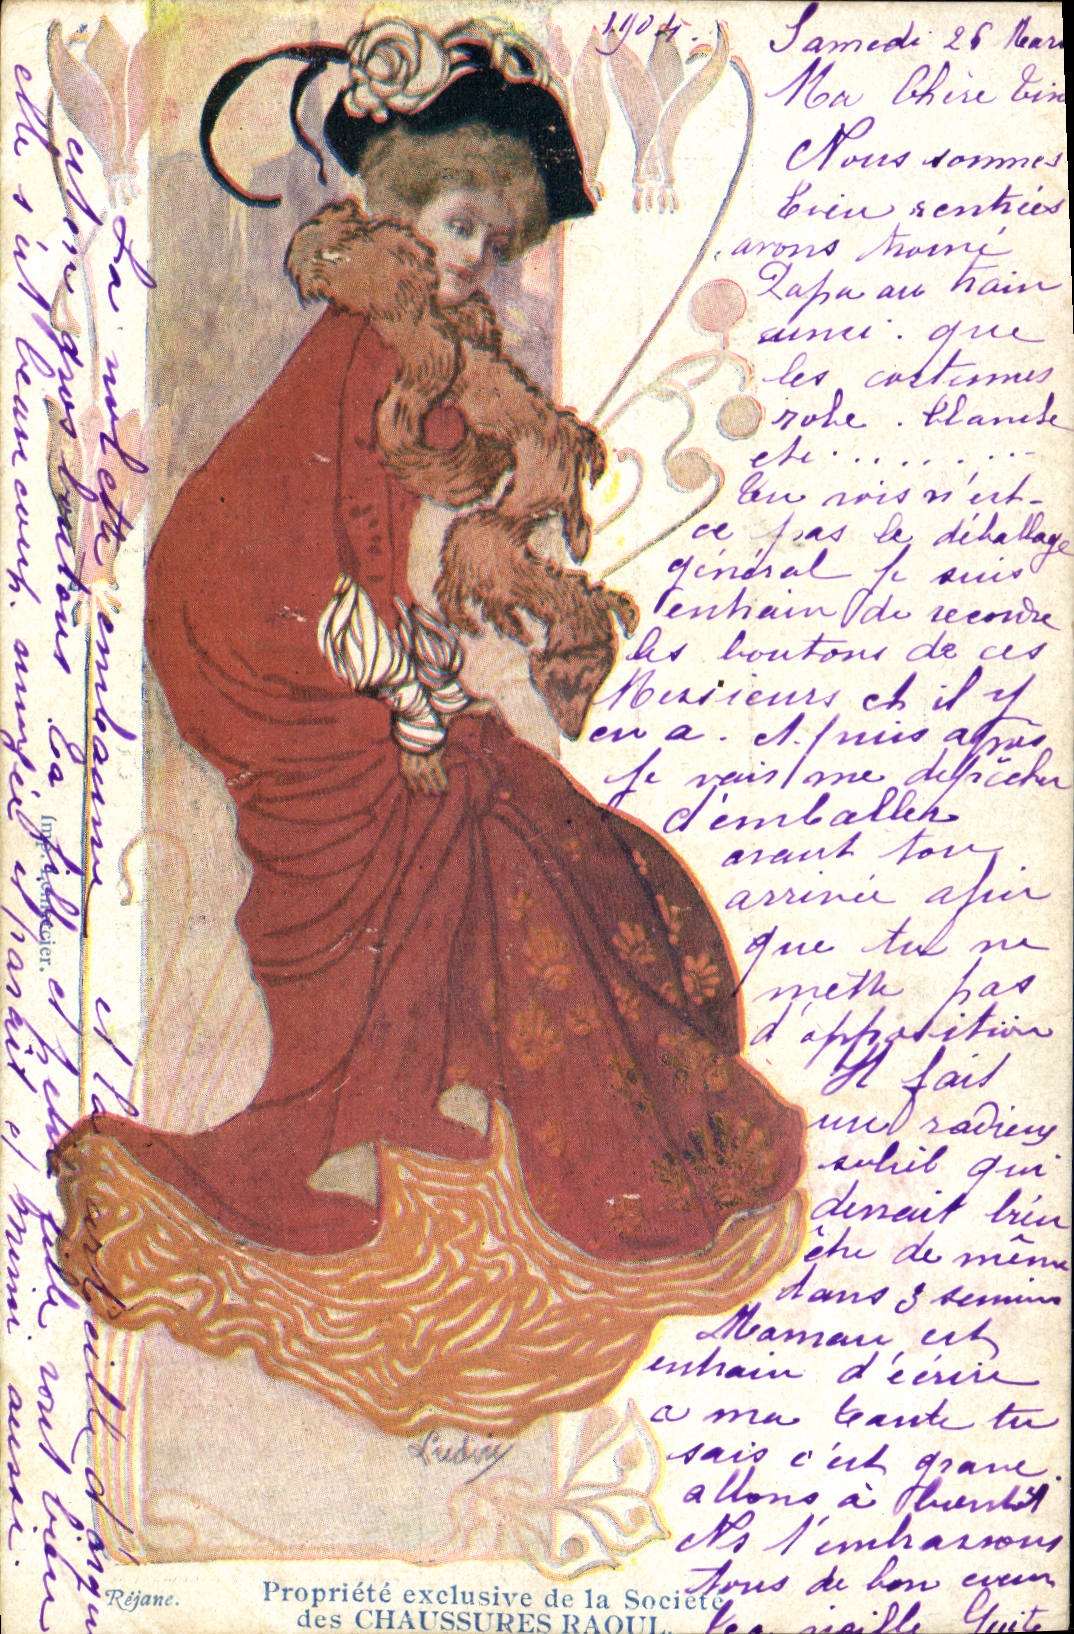 1904.
Samedi 26 Mars
Ma Chère
Nous sommes
bien rentrées
avons trouvé
Papa au train
ainsi. que
les costumes
robe. blanche
etc..........
Tu vois n'est-
ce pas le déballage
général je suis
entrain de recoudre
les boutons de ces
Messieurs et il y
en a. et puis après
je vais me dépêcher
d'emballer
avant ton
arrivée afin
que tu ne
mette pas
d'opposition
Il fait
un radieux
soleil qui
devrait bien
être de même
dans 3 semains
Maman est
entrain d'écrire
a ma tante tu
sais c'est grave.
allons à bientôt
Ns t'embrassons
tous de bon cœur
Ta vieille Guite
La violette embaume et la carte est
est en gros boutons La fille et petite fille vont bien
elle s'est beaucoup amusée et paraît-il Mimi aussi.
Imp. Lemercier.
Ludvic
Réjane.
Propriété exclusive de la Société
des CHAUSSURES RAOUL.